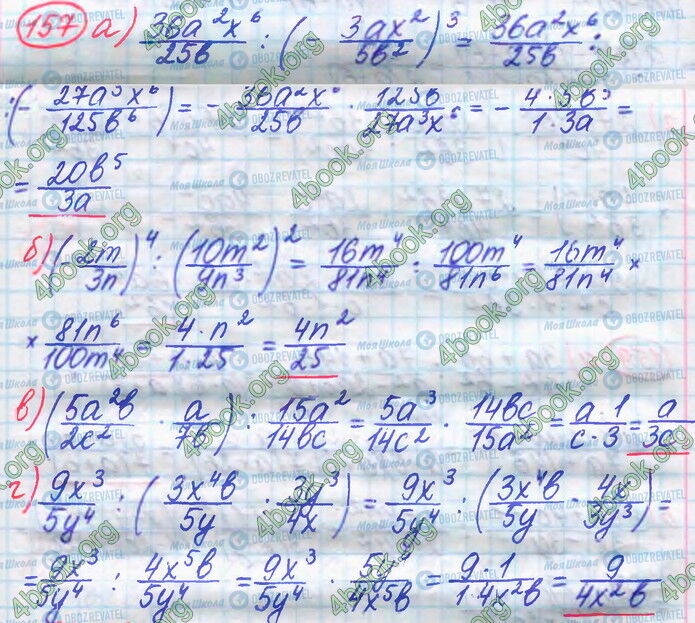 157 а) 36a²x⁶/25b : (- 3ax²/5b²)³ = 36a²x⁶/25b :
: (- 27a³x⁶/125b⁶) = - 36a²x⁶/25b · 125b/27a³x⁶ = - 4·5b⁵/1·3a =
= 20b⁵/3a
б) (- 2m/3n)⁴ : (10m²/4n³)² = 16m⁴/81n⁴ : 100m⁴/81n⁶ = 16m⁴/81n⁴ ×
× 81n⁶/100m⁴ = 4·n²/1·25 = 4n²/25
в) (5a²b/2c² · a/7b) : 15a²/14bc = 5a³/14c² · 14bc/15a² = a·1/c·3 = a/3c
г) 9x³/5y⁴ : (3x⁴b/5y : 3y³/4x) = 9x³/5y⁴ : (3x⁴b/5y · 4x/3y³) =
= 9x³/5y⁴ : 4x⁵b/5y⁴ = 9x³/5y⁴ · 5y⁴/4x⁵b = 9·1/1·4x²b = 9/4x²b
4book.org
Моя Школа
OBOZREVATEL